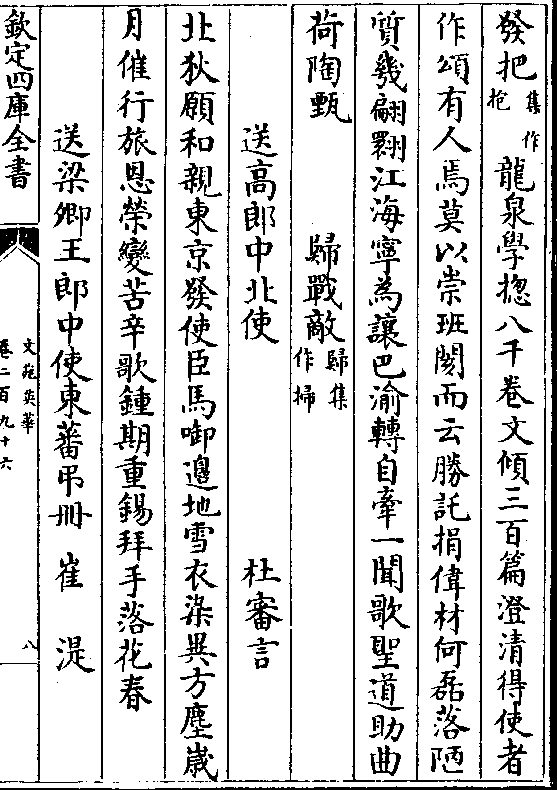 發把集作抱龍泉學揔八千卷文傾三百篇澄清得使者
作頌有人焉莫以崇班閡而云勝託捐偉材何磊落陋
質幾翩翾江海寧為讓巴渝轉自牽一聞歌聖道助曲
荷陶甄
歸戰敵歸集作掃
送高郎中北使　杜審言
北狄願和親東京發使臣馬啣邉地雪衣染異方塵歲
月催行旅恩榮變苦辛歌鍾期重錫拜手落花春
送梁卿王郎中使東蕃吊冊　崔湜
欽定四庫全書
文苑英華
卷二百九十六
八